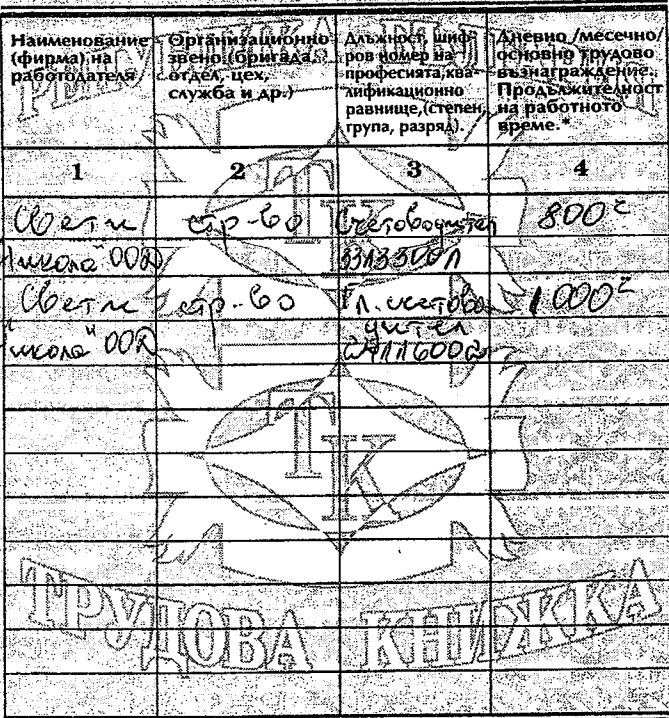 Наименование (фирма) на работодателя
Организационно звено (бригада, отдел, цех, служба и др.)
Длъжност, шифров номер на професията, квалификационно равнище, (степен, група, разряд).
Дневно /месечно/ основно трудово възнаграждение. Продължителност на работното време.*
1 2 3 4
Свети стр-во Счетоводител 800
Никола" ООД 33133001
Свети стр-во Гл. счетово 1000
Никола" ООД дител
24116002
ТК
ТК
ТРУДОВА КНИЖКА